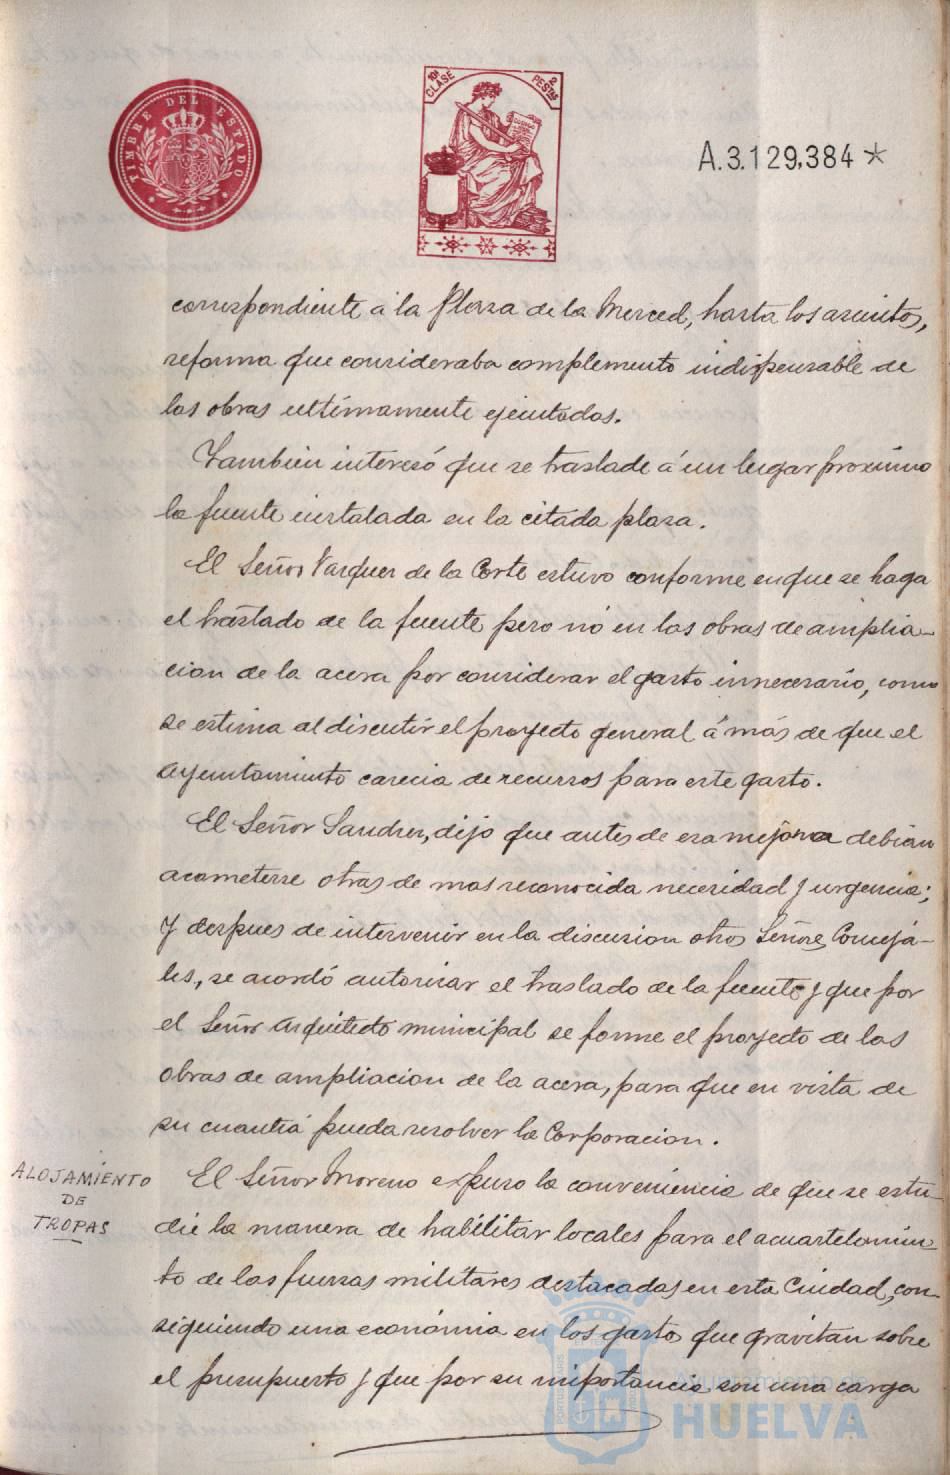 TIMBRE DEL ESTADO
10ª CLASE
2 PESTAS
A.3.129,384 *
correspondiente á la Plaza de la Merced, hasta los asientos,
reforma que consideraba complemento indispensable de
las obras ultimamente ejecutadas.
Tambien interesó que se traslade á un lugar proximo
la fuente instalada en la citada plaza.
El Señor Vazquez de la Corte estuvo conforme en que se haga
el traslado de la fuente pero nó en las obras de amplia-
cion de la acera por considerar el gasto innecesario, como
se estima al discutir el proyecto general á más de que el
Ayuntamiento carecia de recursos para este gasto.
El Señor Sanchez, dijo que antes de esa mejora debian
acometerse otras de mas reconocida necesidad y urgencia;
Y despues de intervenir en la discusion otros Señores Conceja-
les, se acordó autorizar el traslado de la fuente y que por
el Señor Arquitecto municipal se forme el proyecto de las
obras de ampliacion de la acera, para que en vista de
su cuantia pueda resolver la Corporacion.
ALOJAMIENTO
DE
TROPAS
El Señor Moreno expuso la conveniencia de que se estu-
die la manera de habilitar locales para el acuartelamien-
to de las fuerzas militares destacadas en esta Ciudad, con-
siguiendo una economia en los gastos que gravitan sobre
el presupuesto y que por su importancia son una carga
Ayuntamiento de
HUELVA